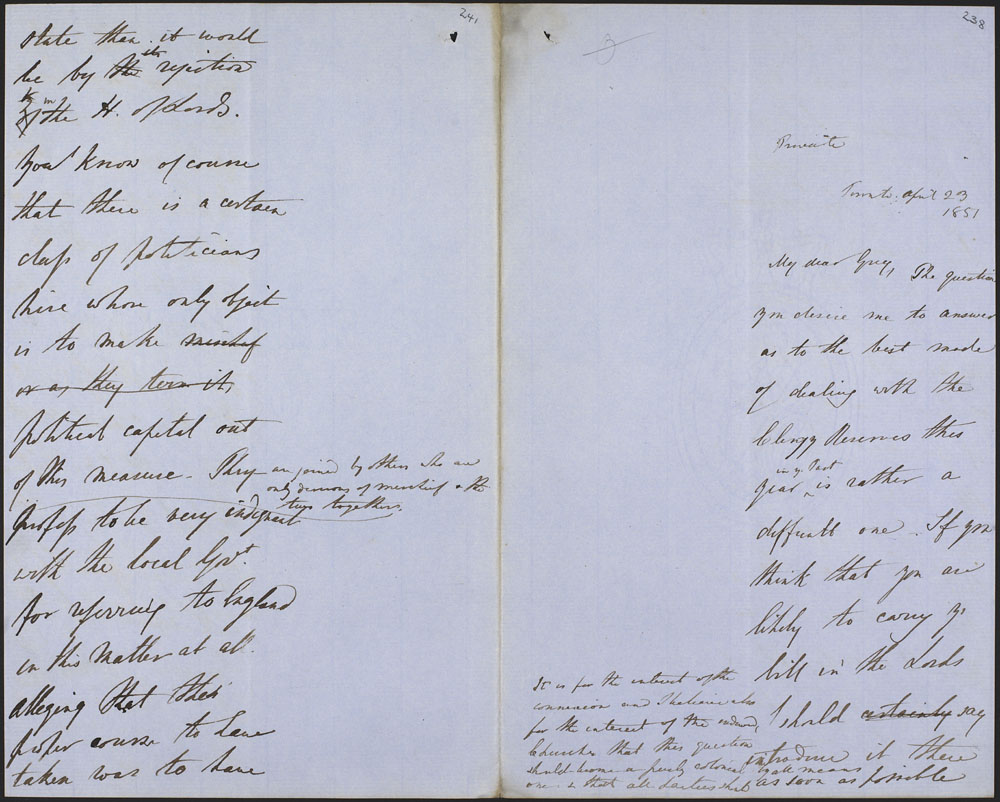 241
state than it would
be by the its rejection
by in the H. of Lords.
You know of course
that there is a certain
class of politicians
here whose only object
is to make mischief
or as they term it,
political capital out
of this measure. They are joined by others who are
only desirous of mischief & the
two together
profess to be very indignant
with the local Govt.
for referring to England
in this matter at all.
alleging that their
proper course to have
taken was to have
238
Private
Toronto. April 23
1851
My dear Grey, The question
you desire me to answer
as to the best mode
of dealing with the
Clergy Reserves this
year in yr Parl is rather a
difficult one. If you
think that you are
likely to carry yr
bill in the Lords
I should certainly say
introduce it there by all means
as soon as possible
It is for the interest of the
connexion and I believe also
for the interest of the endowed
Churches that this question
should become a purely colonial
one & that all parties shd